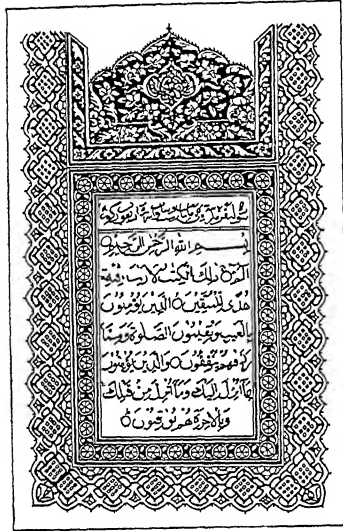 سورة البقرة
بسم الله الرحمن الرحيم
الم ذلك الكتب لا ريب فيه
هدى للمتقين الذين يؤمنون
بالغيب ويقيمون الصلوة ومما
رزقنهم ينفقون والذين يؤمنون
بما أنزل إليك وما أنزل من قبلك
وبالاخرة هم يوقنون